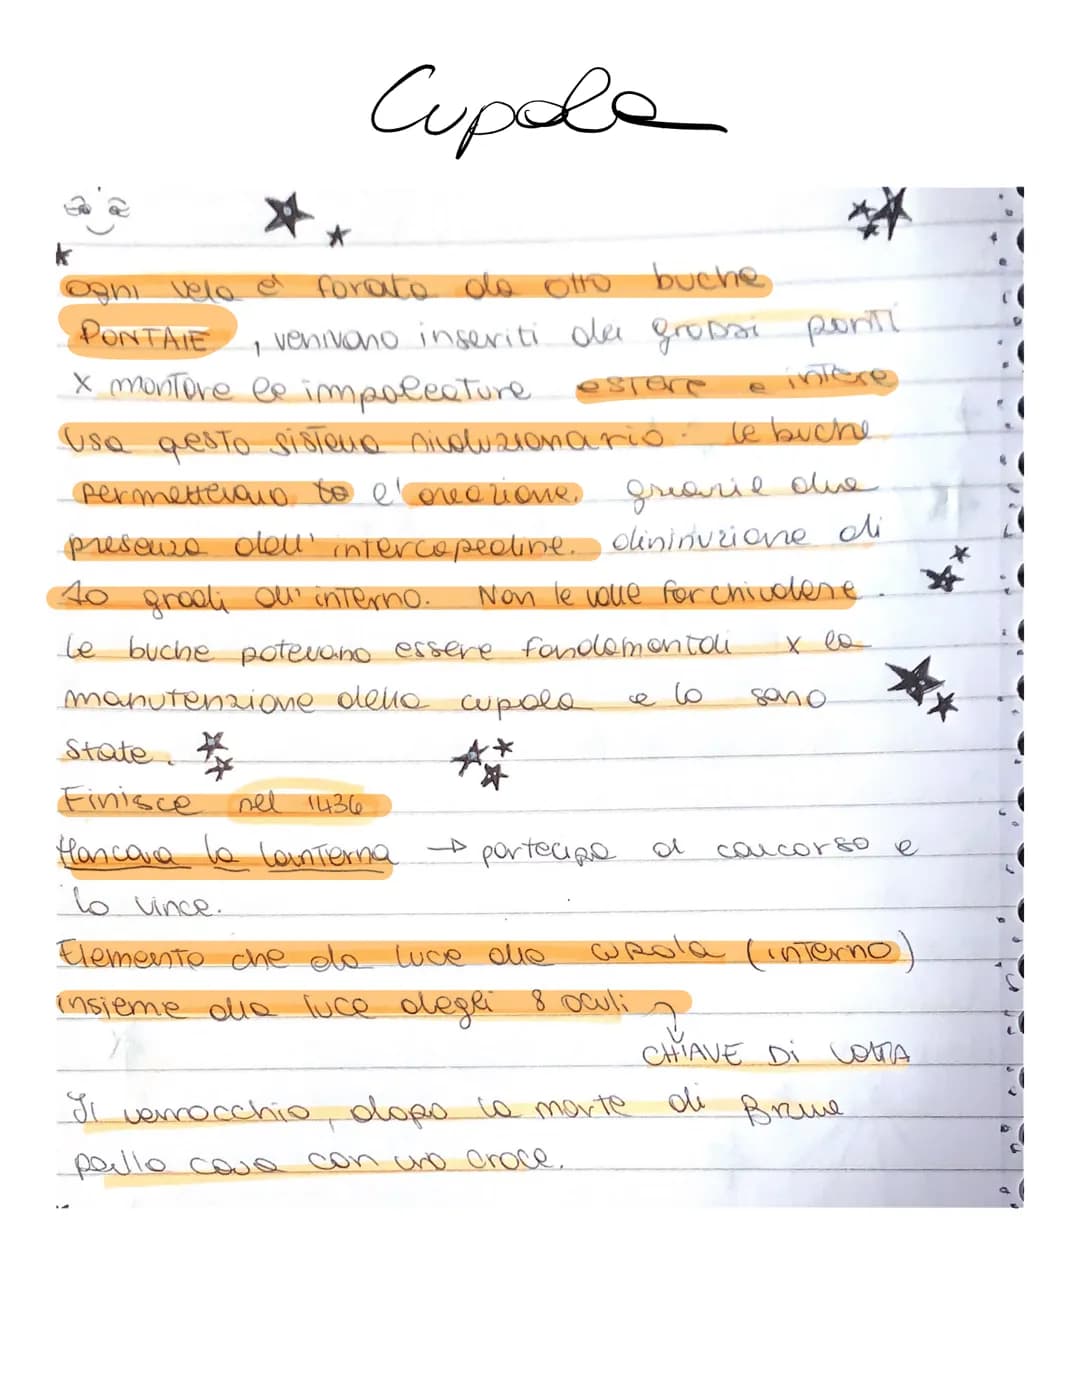 Cupola
ogni vela è forata da otto buche
PONTAIE, venivano inseriti dei grossi ponti
x montare le impalcature esterne e interne
Usa questo sistema rivoluzionario. Le buche
permettevano l'areazione, grazie alla
presenza dell'intercapedine. diminuzione di
10 gradi all'interno. Non le volle far chiudere.
Le buche potevano essere fondamentali x la
manutenzione della cupola e lo sono
state.
Finisce nel 1436
Mancava la lanterna → partecipa al concorso e
lo vince.
Elemento che da luce alla cupola (interno)
insieme alla luce degli 8 oculi
CHIAVE DI VOLTA
Il verrocchio, dopo la morte di Brune
palla cava con una croce.